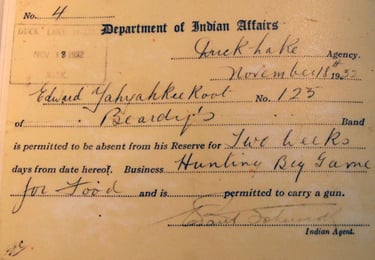 No. 4
Department of Indian Affairs
DUCK LAKE
NOV 18 1932
Duck Lake Agency.
November 18th 1932
Edward Yahyahkeekoot No. 125
of Beardy's Band
is permitted to be absent from his Reserve for Two Weeks
days from date hereof. Business Hunting Big Game
for Food and is permitted to carry a gun.
Indian Agent.